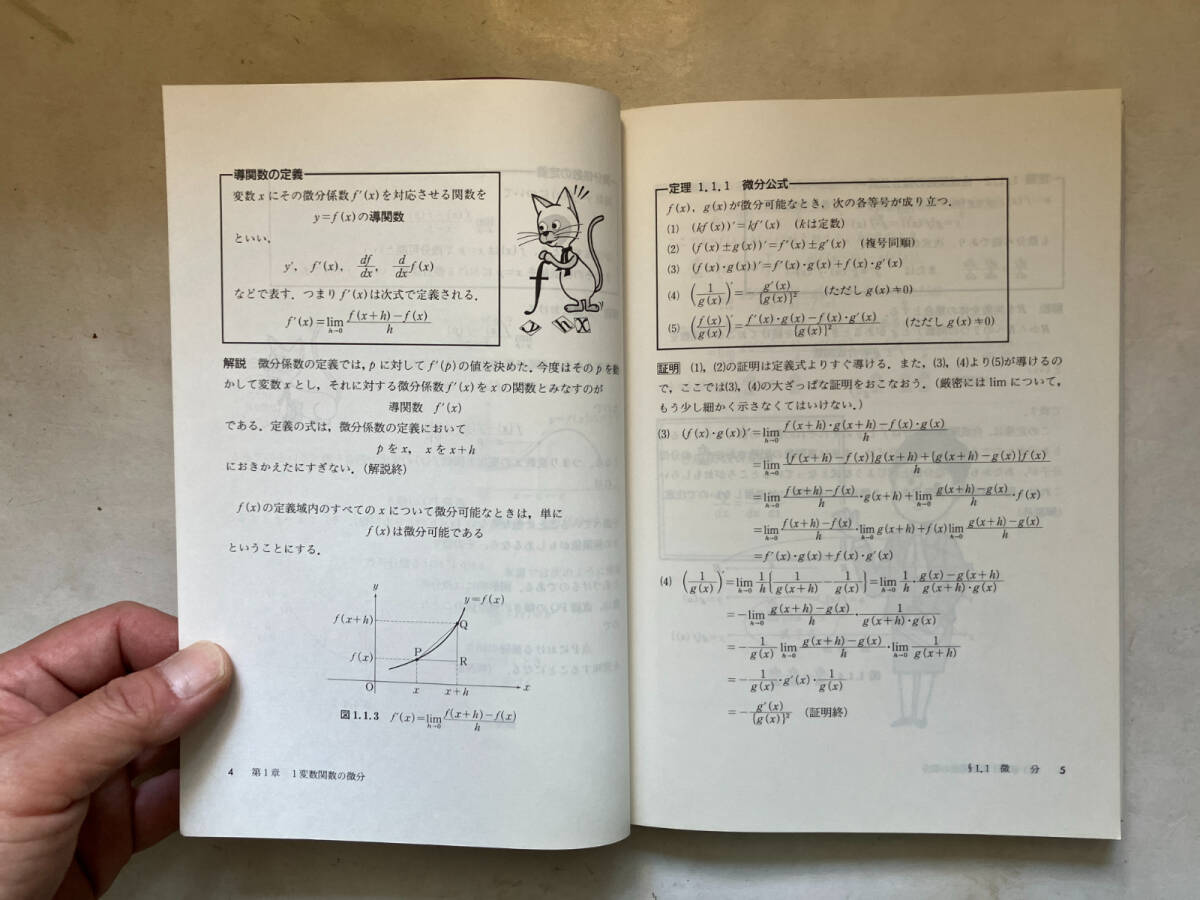 導関数の定義
変数xにその微分係数f′(x)を対応させる関数を
y=f(x)の導関数
といい,
y′, f′(x), df/dx, d/dx f(x)
などで表す. つまりf′(x)は次式で定義される.
f′(x)=lim h→0 f(x+h)−f(x)/h
f
y h x
解説 微分係数の定義では, pに対してf′(p)の値を決めた. 今度はそのpを動
かして変数xとし, それに対する微分係数f′(x)をxの関数とみなすのが
導関数 f′(x)
である. 定義の式は, 微分係数の定義において
pをx, xをx+h
におきかえたにすぎない. (解説終)
f(x)の定義域内のすべてのxについて微分可能なときは, 単に
f(x)は微分可能である
ということにする.
y
y=f(x)
f(x+h)
Q
f(x)
P
R
O
x
x+h
x
図1.1.3 f′(x)=lim h→0 f(x+h)−f(x)/h
4 第1章 1変数関数の微分
定理 1.1.1 微分公式
f(x), g(x)が微分可能なとき, 次の各等号が成り立つ.
(1) (kf(x))′=kf′(x) (kは定数)
(2) (f(x)±g(x))′=f′(x)±g′(x) (複号同順)
(3) (f(x)·g(x))′=f′(x)·g(x)+f(x)·g′(x)
(4) (1/g(x))′=−g′(x)/{g(x)}² (ただしg(x)≠0)
(5) (f(x)/g(x))′=f′(x)·g(x)−f(x)·g′(x)/{g(x)}² (ただしg(x)≠0)
証明 (1), (2)の証明は定義式よりすぐ導ける. また, (3), (4)より(5)が導けるの
で, ここでは(3), (4)の大ざっぱな証明をおこなおう. (厳密にはlimについて,
もう少し細かく示さなくてはいけない.)
(3) (f(x)·g(x))′=lim h→0 f(x+h)·g(x+h)−f(x)·g(x)/h
=lim h→0 {f(x+h)−f(x)}g(x+h)+{g(x+h)−g(x)}f(x)/h
=lim h→0 f(x+h)−f(x)/h·g(x+h)+lim h→0 g(x+h)−g(x)/h·f(x)
=lim h→0 f(x+h)−f(x)/h·lim h→0 g(x+h)+f(x)lim h→0 g(x+h)−g(x)/h
=f′(x)·g(x)+f(x)·g′(x)
(4) (1/g(x))′=lim h→0 1/h{1/g(x+h)−1/g(x)}=lim h→0 1/h·g(x)−g(x+h)/g(x+h)·g(x)
=−lim h→0 g(x+h)−g(x)/h·1/g(x+h)·g(x)
=−1/g(x) lim h→0 g(x+h)−g(x)/h·lim h→0 1/g(x+h)
=−1/g(x)·g′(x)·1/g(x)
=−g′(x)/{g(x)}² (証明終)
§1.1 微 分 5